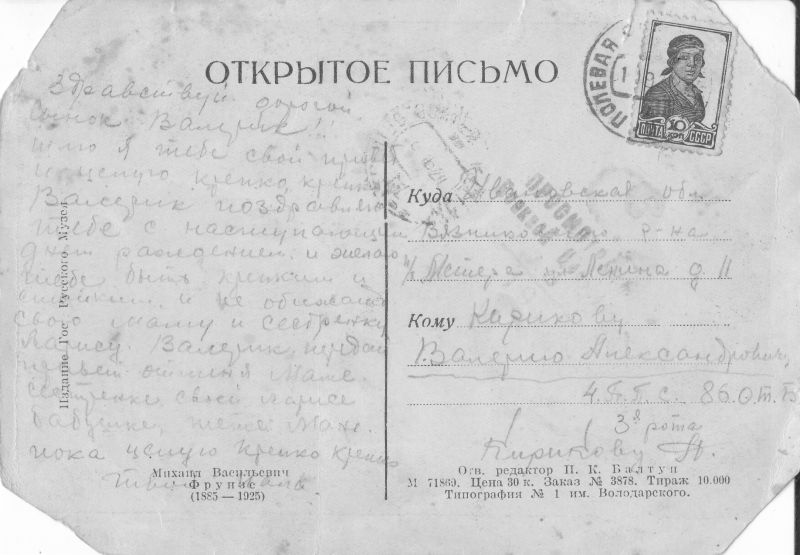 ОТКРЫТОЕ ПИСЬМО
ПОЛЕВАЯ
ПОЧТА 10 КОП. СССР
Здравствуй дорогой
сынок Валерик!!
шлю я тебе свой привет
и целую крепко, крепко
Валерик поздравляю
тебя с наступающим
днем рождением и желаю
тебе быть крепким и
и не обижать
свою маму и сестренку
Ларису. Валерик, передай
привет маме.
сестренке своей Ларисе
бабушке, тете
пока целую крепко крепко
Твой папа
Издание Гос. Русского Музея
Михаил Васильевич
Фрунзе
(1885—1925)
Куда Ивановская обл.
Вязниковского р-на
Мстера ул Ленина д 11
Кому Карикову
Валерию Александровичу
4 П.П.С. 86 О.Т.Б.
3я рота
Карикову А.
Отв. редактор П. К. Балтун
М 71869. Цена 30 к. Заказ № 3878. Тираж 10.000
Типография № 1 им. Володарского.